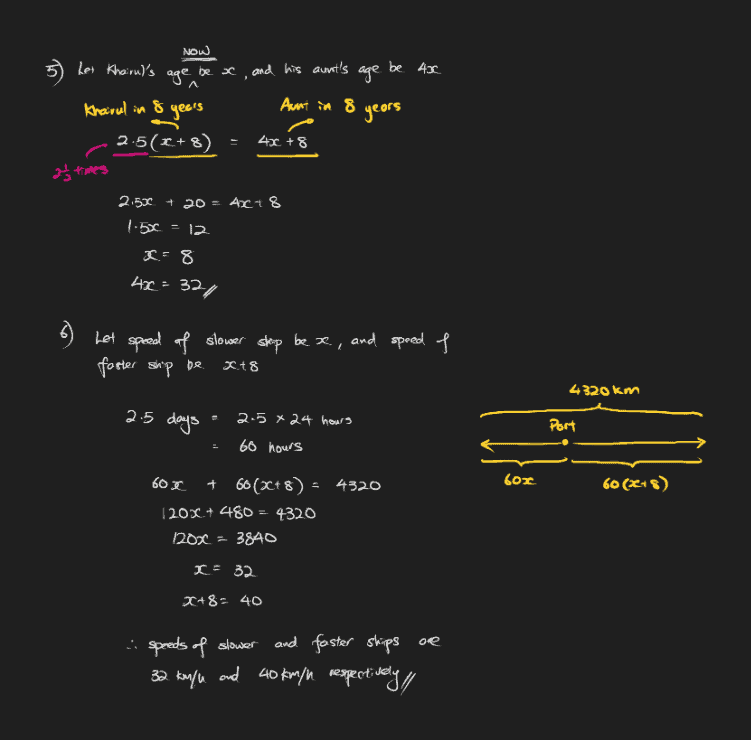 NOW
5) Let Khairul's age ^ be x, and his aunt's age be 4x
Khairul in 8 years
Aunt in 8 years
2.5(x+8) = 4x+8
times
2.5x + 20 = 4x+8
1.5x = 12
x = 8
4x = 32//
6) Let speed of slower ship be x, and speed of
faster ship be x+8
4320 km
2.5 days = 2.5 × 24 hours
Port
= 60 hours
60x + 60(x+8) = 4320
60x
60(x+8)
120x + 480 = 4320
120x = 3840
x = 32
x+8 = 40
∴ speeds of slower and faster ships are
32 km/h and 40 km/h respectively//